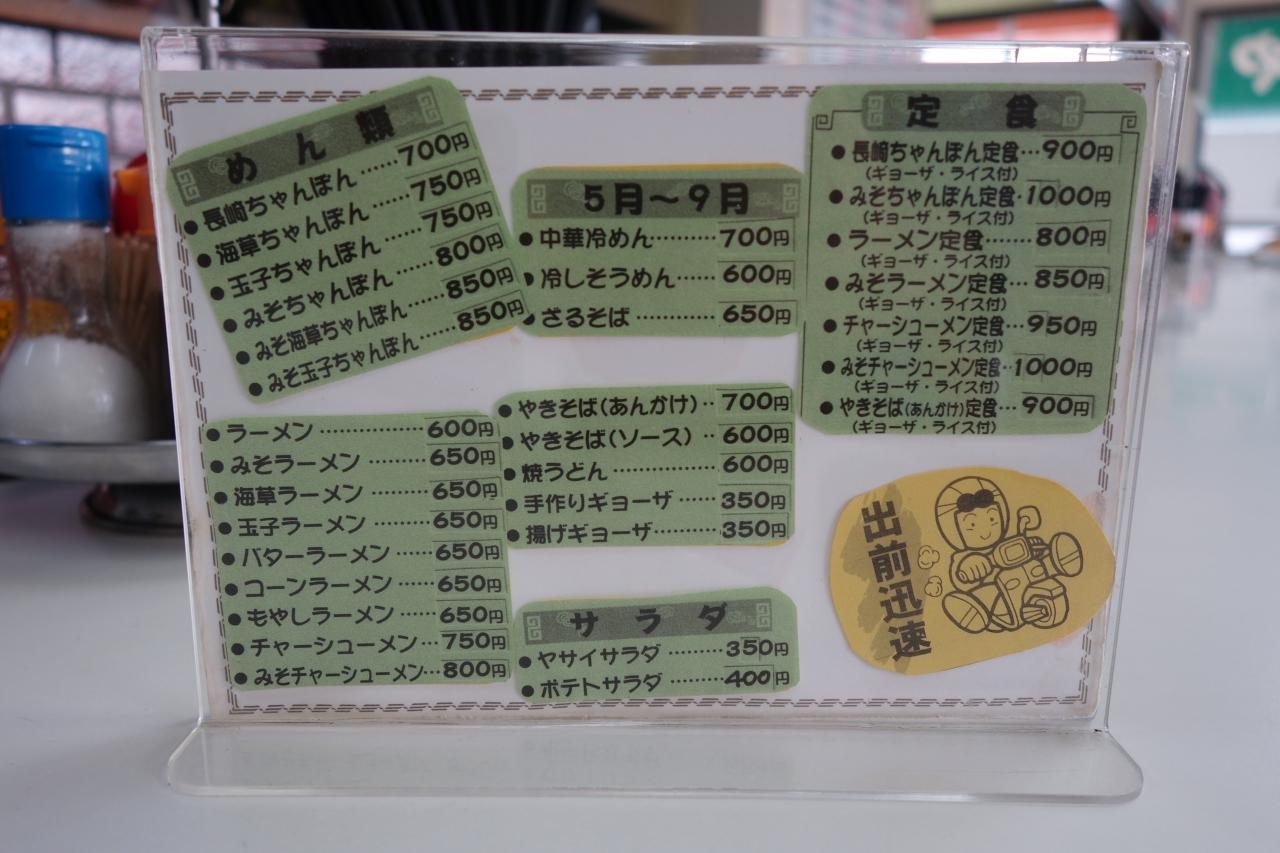 めん類
●長崎ちゃんぽん……700円
●海草ちゃんぽん……750円
●玉子ちゃんぽん……750円
●みそちゃんぽん……800円
●みそ海草ちゃんぽん……850円
●みそ玉子ちゃんぽん……850円
●ラーメン………………600円
●みそラーメン………650円
●海草ラーメン………650円
●玉子ラーメン………650円
●バターラーメン……650円
●コーンラーメン……650円
●もやしラーメン……650円
●チャーシューメン…750円
●みそチャーシューメン…800円
5月～9月
●中華冷めん………700円
●冷しそうめん……600円
●ざるそば…………650円
●やきそば(あんかけ)‥700円
●やきそば(ソース)‥600円
●焼うどん……………600円
●手作りギョーザ……350円
●揚げギョーザ………350円
サラダ
●ヤサイサラダ………350円
●ポテトサラダ………400円
定食
●長崎ちゃんぽん定食…900円
(ギョーザ・ライス付)
●みそちゃんぽん定食‥1000円
(ギョーザ・ライス付)
●ラーメン定食………800円
(ギョーザ・ライス付)
●みそラーメン定食…850円
(ギョーザ・ライス付)
●チャーシューメン定食…950円
(ギョーザ・ライス付)
●みそチャーシューメン定食‥1000円
(ギョーザ・ライス付)
●やきそば(あんかけ)定食…900円
(ギョーザ・ライス付)
出前迅速